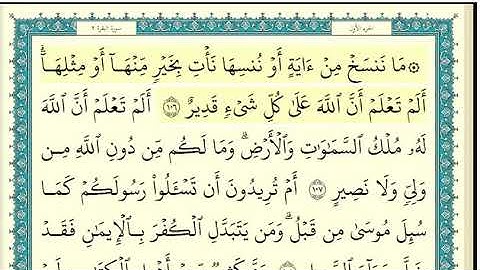 سورة البقرة ٢ الجزء الأول
۞ مَا نَنسَخْ مِنْ ءَايَةٍ أَوْ نُنسِهَا نَأْتِ بِخَيْرٍ مِّنْهَآ أَوْ مِثْلِهَآ ۗ
أَلَمْ تَعْلَمْ أَنَّ ٱللَّهَ عَلَىٰ كُلِّ شَىْءٍ قَدِيرٌ ١٠٦ أَلَمْ تَعْلَمْ أَنَّ ٱللَّهَ
لَهُۥ مُلْكُ ٱلسَّمَٰوَٰتِ وَٱلْأَرْضِ ۗ وَمَا لَكُم مِّن دُونِ ٱللَّهِ مِن
وَلِىٍّ وَلَا نَصِيرٍ ١٠٧ أَمْ تُرِيدُونَ أَن تَسْـَٔلُوا۟ رَسُولَكُمْ كَمَا
سُئِلَ مُوسَىٰ مِن قَبْلُ ۗ وَمَن يَتَبَدَّلِ ٱلْكُفْرَ بِٱلْإِيمَٰنِ فَقَدْ